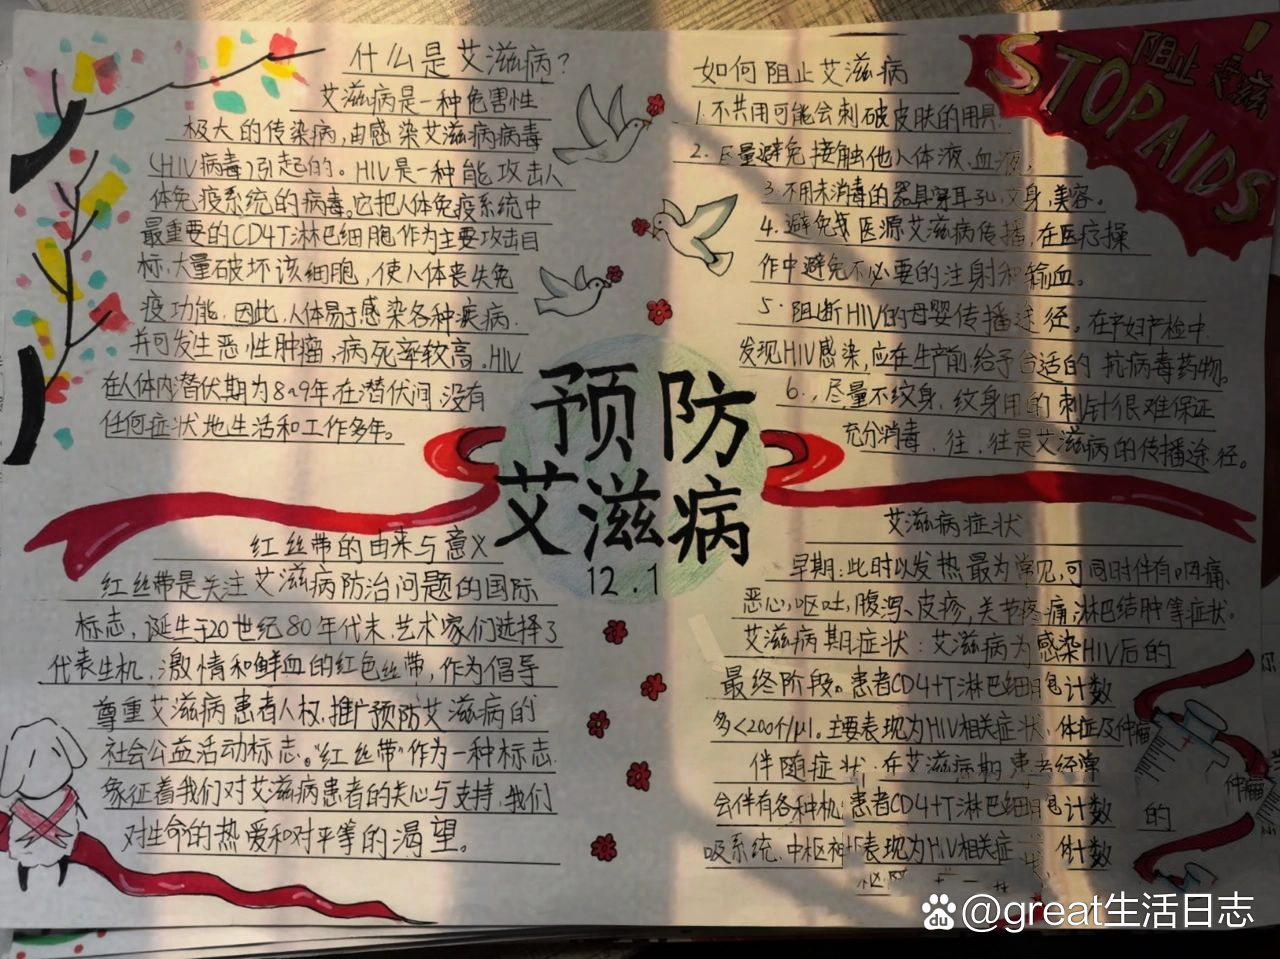 什么是艾滋病?
艾滋病是一种危害性
极大的传染病,由感染艾滋病病毒
(HIV病毒)引起的。HIV是一种能攻击人
体免疫系统的病毒。它把人体免疫系统中
最重要的CD4T淋巴细胞作为主要攻击目
标,大量破坏该细胞,使人体丧失免
疫功能,因此,人体易于感染各种疾病,
并可发生恶性肿瘤,病死率较高。HIV
在人体内潜伏期为8~9年,在潜伏间,没有
任何症状地生活和工作多年。
如何阻止艾滋病
1.不共用可能会刺破皮肤的用具.
2.尽量避免接触他人体液,血液,
3.不用未消毒的器具穿耳孔,文身,美容。
4.避免医源艾滋病传播,在医疗操
作中避免不必要的注射和输血。
5.阻断HIV的母婴传播途径。在孕妇产检中
发现HIV感染,应在生产前给予合适的抗病毒药物。
6.,尽量不纹身,纹身用的刺针很难保证
充分消毒,往,往是艾滋病的传播途径。
STOP AIDS!
阻止艾滋
预防
艾滋病
12.1
红丝带的由来与意义
红丝带是关注艾滋病防治问题的国际
标志,诞生于20世纪80年代末,艺术家们选择了
代表生机,激情和鲜血的红色丝带,作为倡导
尊重艾滋病患者人权,推广预防艾滋病的
社会公益活动标志。“红丝带”作为一种标志
象征着我们对艾滋病患者的关心与支持,我们
对生命的热爱和对平等的渴望。
艾滋病症状
早期:此时以发热最为常见,可同时伴有咽痛、
恶心,呕吐,腹泻、皮疹,关节疼痛,淋巴结肿等症状。
艾滋病期症状:艾滋病为感染HIV后的
最终阶段。患者CD4+T淋巴细胞计数
多<200个/μl。主要表现为HIV相关症状、体症及肿瘤
伴随症状:在艾滋病期患者经常
会伴有各种机 患者CD4+T淋巴细胞计数 的
吸系统,中枢神 表现为HIV相关症 状、 计数
肿瘤
@great生活日志